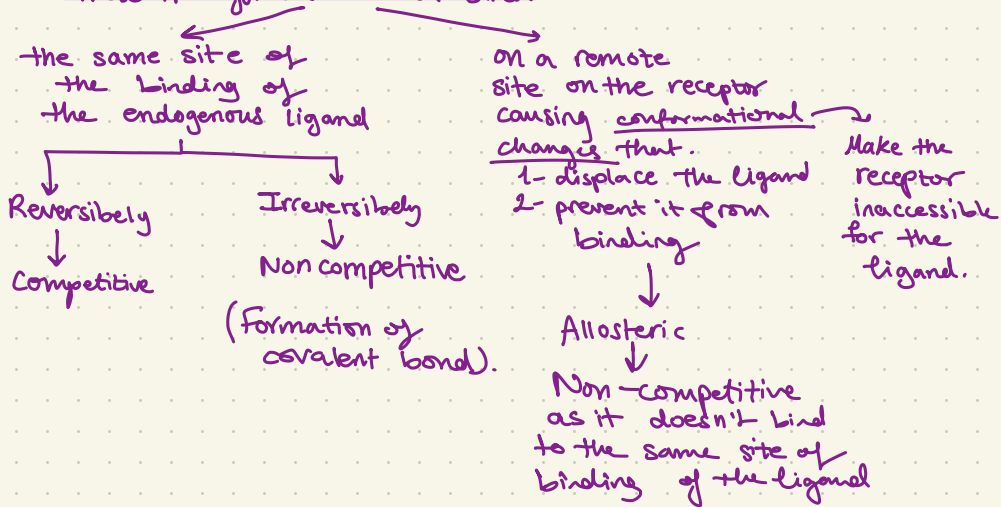 the same site of
the binding of
the endogenous ligand
Reversibely
Competitive
Irreversibely
Non competitive
(Formation of
covalent bond).
on a remote
site on the receptor
causing conformational
changes that.
1- displace the ligand
2- prevent it from
binding
Make the
receptor
inaccessible
for the
ligand.
Allosteric
Non-competitive
as it doesn't bind
to the same site of
binding of the ligand